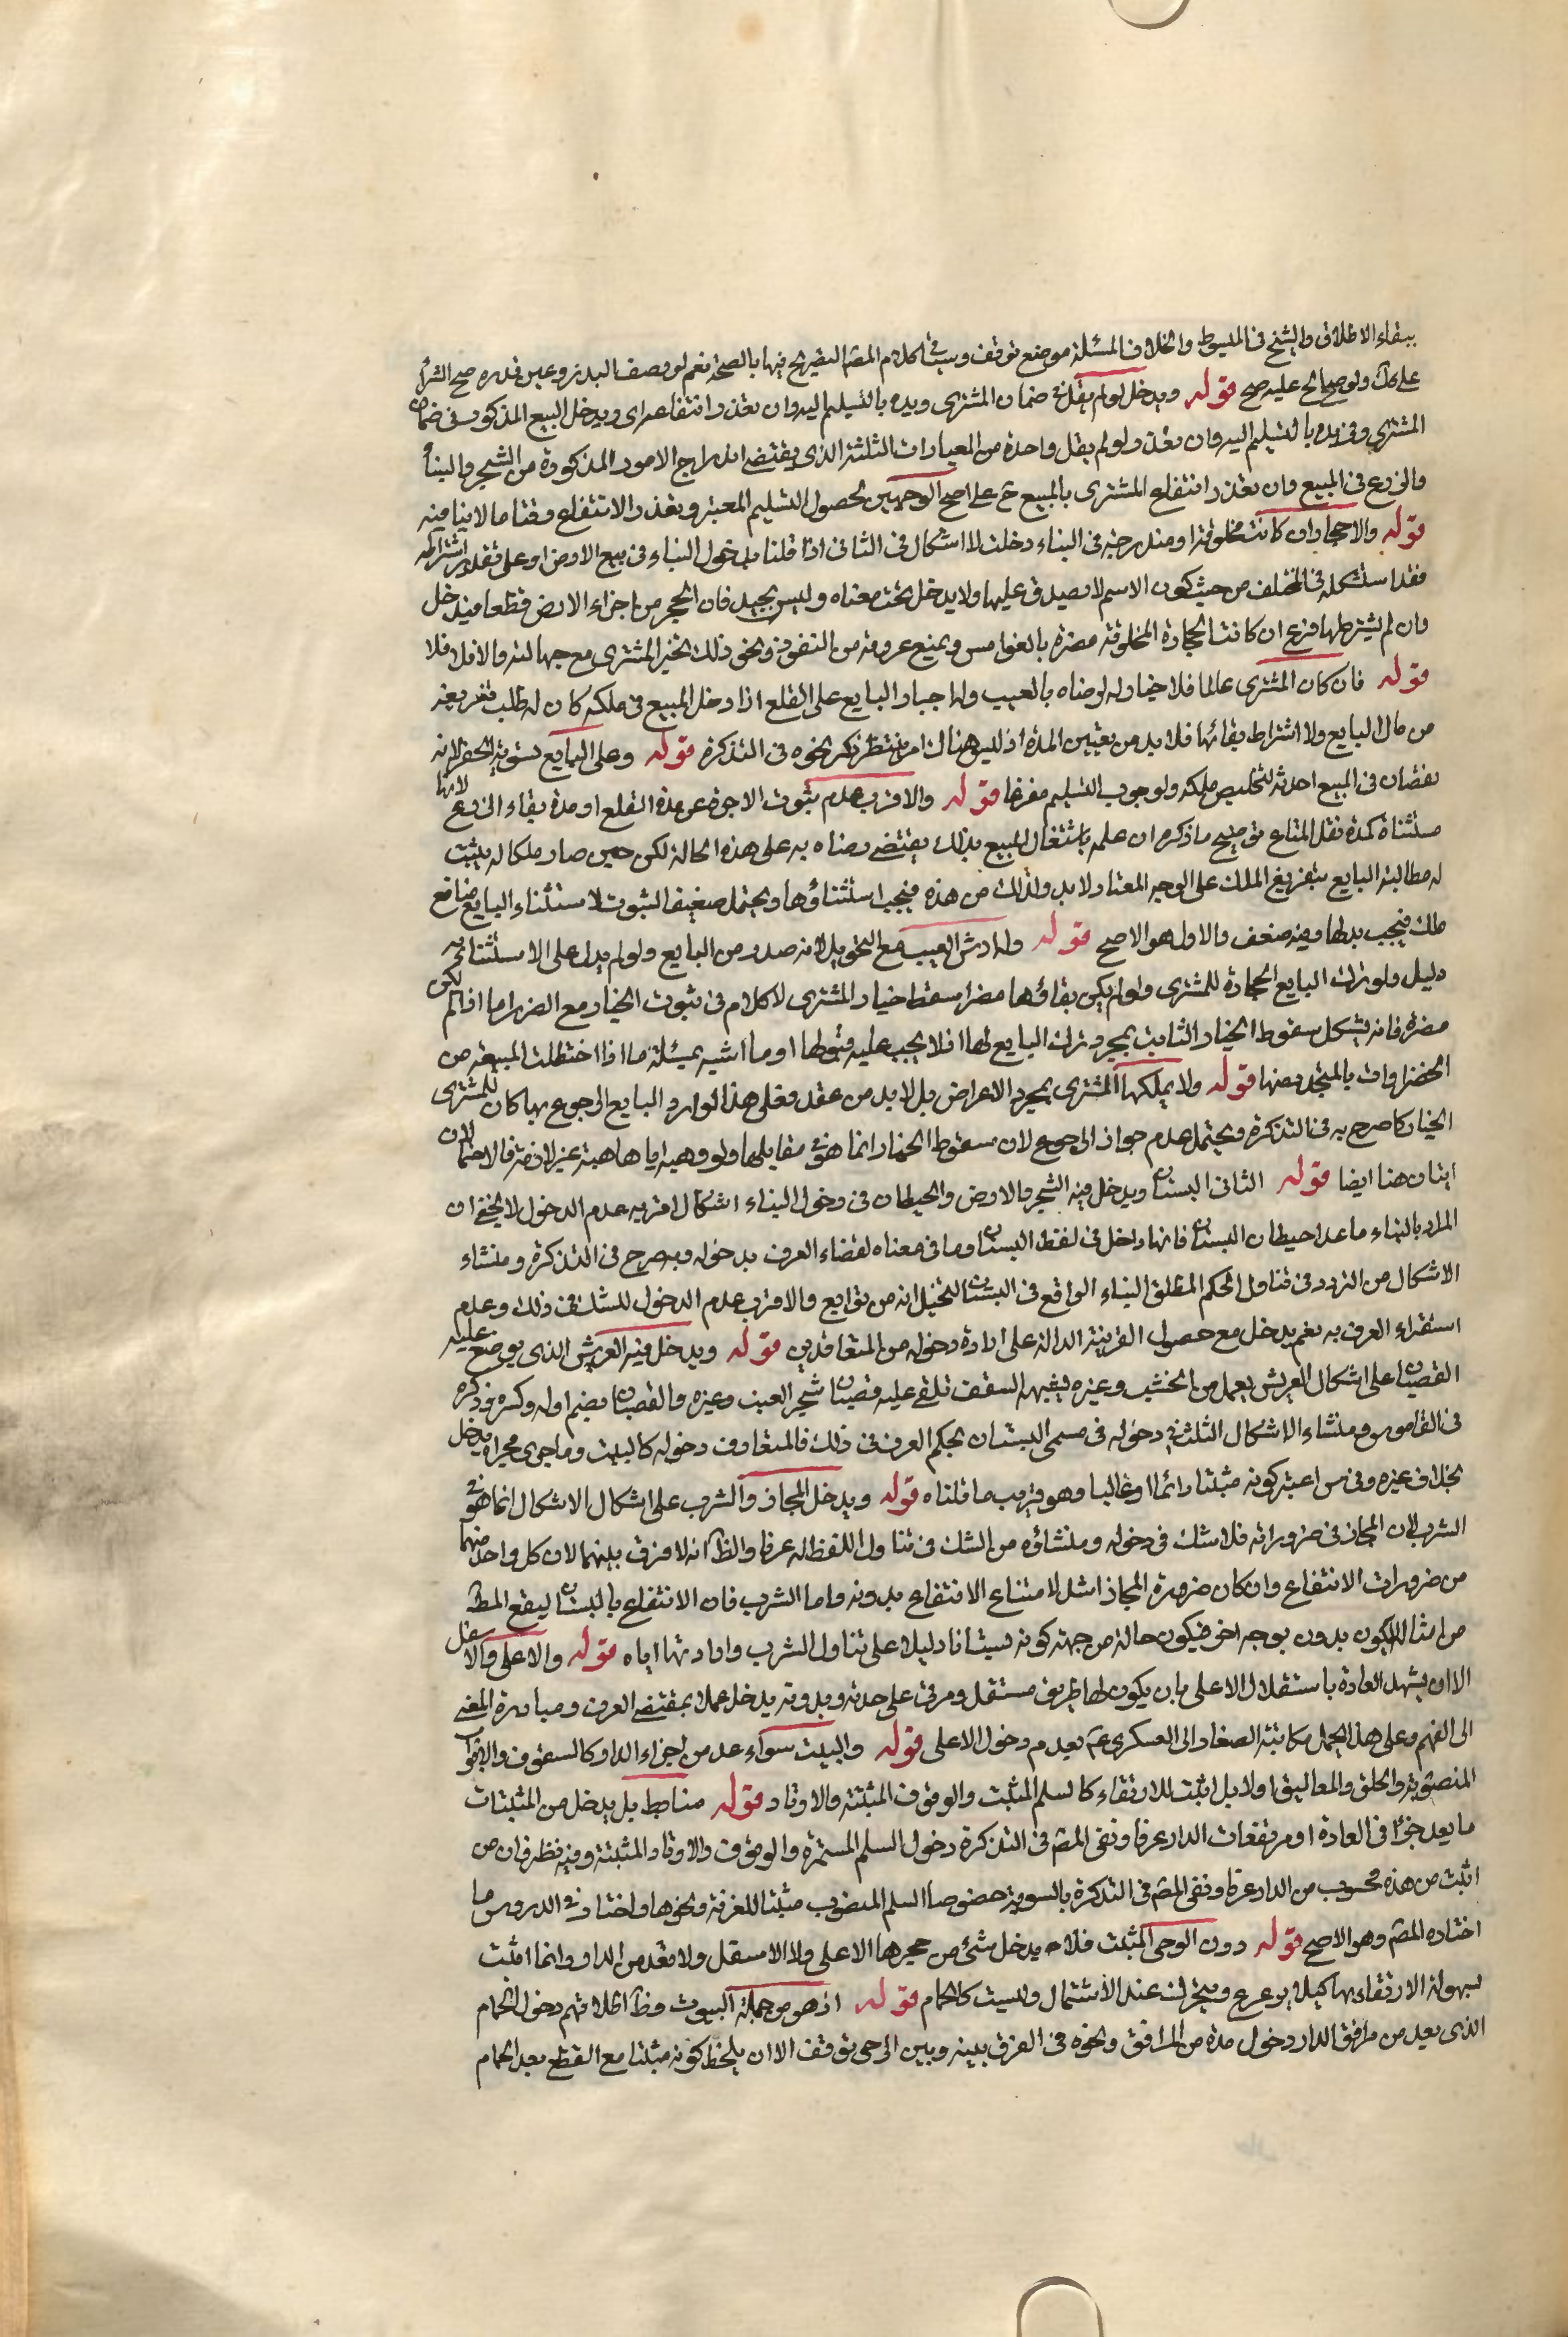 ببقاء الاطلاق والشيخ في المبسوط والخلاف المسئلة موضع توقف وسيأتي في كلام المصّ التصريح فيها بالصحة نعم لو وصف البذر وعين قدره صح الشراء
على ولو صالح عليه صح قوله ويدخل لو لم يقل في ضمان المشتري ويده بالتسليم اليه وان تعذر انتفاعه اي ويدخل البيع المذكور في ضمان
المشتري وفي يده بالتسليم اليه وان تعذر ولو لم يقل واحدة من العبارات الثلثة الذي يقتضي اندراج الامور المذكورة من الشجر والبناء
والزرع في المبيع وان تعذر انتفاع المشتري بالمبيع ح على اصح الوجهين لحصول التسليم المعتبر وتعذر الانتفاع وقتا ما لا ينافيه
قوله والاحجار ان كانت مخلوقة او مندرجة في البناء دخلت لا اشكال في الثاني اذا قلنا بدخول البناء في بيع الارض او على تقدير اشتراطه
فقد استشكله في المختلف من حيث كون الاسم لا يصدق عليها ولا يدخل تحت معناه وليس بجيد فان الحجر من اجزاء الارض قطعا فيدخل
وان لم يشترطها فرع ان كانت الحجارة المخلوقة مضرة بالغوامس ويمنع عروقه من النفوذ ونحو ذلك تخير المشتري مع جهالته والا فلا
قوله فان كان المشتري عالما فلا خيار له لرضاه بالعيب وله اجبار البايع على القلع اذا دخل المبيع في ملكه كان له طلب تفريغه
من مال البايع ولا اشتراط بقائها فلا بد من تعيين المدة اذ ليس هناك امر ينتظر ذكر نحوه في التذكرة قوله وعلى البايع تسوية الحفر لانه
نقصان في المبيع احدثه لتخليص ملكه ولوجوب التسليم مفرغا قوله والاقرب عدم ثبوت الاجرة عن مدة القلع او مدة بقاء الزرع لانها
مستثناة كمدة نقل المتاع توضيح ما ذكره ان علمه باشتغال المبيع بذلك يقتضي رضاه به على هذه الحالة لكن حين صار ملكا له يثبت
له مطالبة البايع بتفريغ الملك على الوجه المعتاد ولا بد لذلك من هذه فيجب استثناؤها ويحتمل ضعيفا الثبوت لاستثناء البايع منافع
ملك فيجب بدلها وفيه ضعف والاول هو الاصح قوله وله ارش العيب مع التحويل لانه صدر من البايع ولو لم يدل على الاستثنائه
دليل ولو ترك البايع الحجارة للمشتري ولو لم يكن بقاؤها مضرا سقط خيار المشتري لا كلام في ثبوت الخيار مع الضرر اما اذا لم تكن
مضرة فانه يشكل سقوط الخيار الثابت بمجرد ترك البايع لها اذ لا يجب عليه قبولها او ما اشبه بمسئلة ما اذا اختلطت المبيعة من
الخضراوات بالمتجدد منها قوله ولا يملكها المشتري بمجرد الاعراض بل لا بد من عقد فعلى هذا لو اراد البايع الرجوع بها كان للمشتري
الخيار كما صرح به في التذكرة ويحتمل عدم جواز الرجوع لان سقوط الخيار انما هو في مقابلها ولو وهبه اياها هبة غير لازمة فالاحتمالان
اتيان هنا ايضا قوله الثاني البستان ويدخل فيه الشجر والارض والحيطان في دخول البناء اشكال اقربه عدم الدخول لا يخفى ان
المراد بالبناء ما عدا حيطان البستان فانها داخل في لفظ البستان وما في معناه لقضاء العرف بدخوله وبه صرح في التذكرة ومنشاء
الاشكال من التردد في تناول الحكم المطلق البناء الواقع في البستان لتخيل انه من توابع والاقرب عدم الدخول للشك في ذلك وعدم
استقراء العرف به نعم يدخل مع حصول القرينة الدالة على ارادة دخوله من المتعاقدين قوله ويدخل فيه العريش الذي يوضع عليه
القضبان على اشكال العريش يعمل من الخشب وغيره يشبه السقف تلقى عليه قضبان شجر العنب وغيره والقضبان بضم اوله وكسره ذكره
في القاموس ومنشاء الاشكال الشك في دخوله في مسمى البستان بحكم العرف في ذلك فالمتعارف دخوله كالبيت وما جرى مجراه يدخل
بخلاف غيره وفي س اعتبر كونه مثبتا دائما او غالبا وهو قريب مما قلناه قوله ويدخل المجاز والشرب على اشكال الاشكال انما هو في
الشرب لان المجاز في ضروراته فلا شك في دخوله ومنشاؤه من الشك في تناول اللفظ له عرفا والظ انه لا فرق بينهما لان كل واحد منهما
من ضرورات الانتفاع وان كان ضرورة المجاز اشد لامتناع الانتفاع بدونه واما الشرب فان الانتفاع بالبستان ليقع المط
من امثاله لا يكون بدون بوجه اخر فيكون حالة من جهة كونه بستانا دليلا على تناول الشرب وارادتها اياه قوله والاعلى والاسفل
الا ان يشهد العادة باستقلال الاعلى بان يكون لها طريق مستقل ومرفق على حدته وبدونه يدخل عملا بمقتضى العرف ومبادرة المعنى
الى الفهم وعلى هذا يحمل مكاتبة الصفار الى العسكري ع بعدم دخول الاعلى قوله والبيت سواء عد من اجزاء الدار كالسقوف والابواب
المنصوبة والحلق والمعاليق او لا بل اثبت للارتقاء كالسلم المثبت والرفوف المثبتة والاوتاد قوله مناط بل يدخل من المثبتات
ما يعد جزءا في العادة او مرتفعات الدار عرفا ونفى المصّ في التذكرة دخول السلم المستمرة والرفوف والاوتاد المثبتة وفيه نظر فان من
اثبت من هذه محسوب من الدار عرفا ونفى المصّ في التذكرة بالسوية خصوصا السلم المنصوب مثبتا للغرفة ونحوها واختار في الدروس ما
اختاره المصّ وهو الاصح قوله دون الرحى المثبت فلا يدخل شئ من حجرها الاعلى ولا الاسفل ولا تعد من الدار وانما اثبت
لسهولة الارتفاء بها كيلا يزعزع ويتحرك عند الاشتمال وليست كالحمام قوله اذ هو من جملة البيوت وظ اطلاقهم دخول الحمام
الذي يعد من مرافق الدار دخول مدة من المرافق ونحوه في الفرق بينه وبين الرحى توقف الا ان يلحظ كونه مثبتا مع القطع بعد الحمام